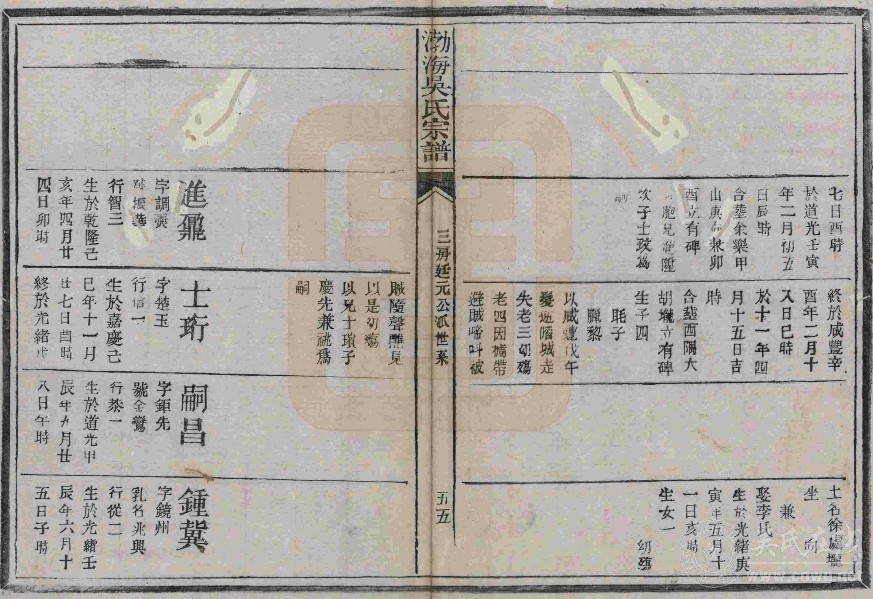 七日酉時
於道光壬寅
年二月初五
日辰時
合葬余樂甲
山庚向兼卯
酉立有碑
胞兄進
次子士玫為
嗣
終於咸豐辛
酉年二月十
八日巳時
於十一年四
月十五日吉
時
合葬西隅大
胡壠立有碑
生子四
以咸豐戊午
失老三幼殤
老四因襁帶
避賊啼叫被
土名徐處壠
坐 向
兼
娶李氏
生於光緒庚
寅年五月十
一日亥時
生女一 幼殤
渤海吳氏宗譜
三房廷元公派世系
五五
賊隨聲
以是幼殤
以兄士瓚子
慶先兼祧爲
嗣
進
字調
行智三
生於乾隆己
亥年四月廿
四日卯時
士珩
字楚玉
行信一
生於嘉慶己
巳年十一月
廿七日酉時
終於光緒戊
嗣昌
字鉅先
號金鸞
行恭一
生於道光甲
辰年九月廿
八日午時
鍾冀
字鏡州
乳名兆興
行從二
生於光緒壬
辰年六月十
五日子時